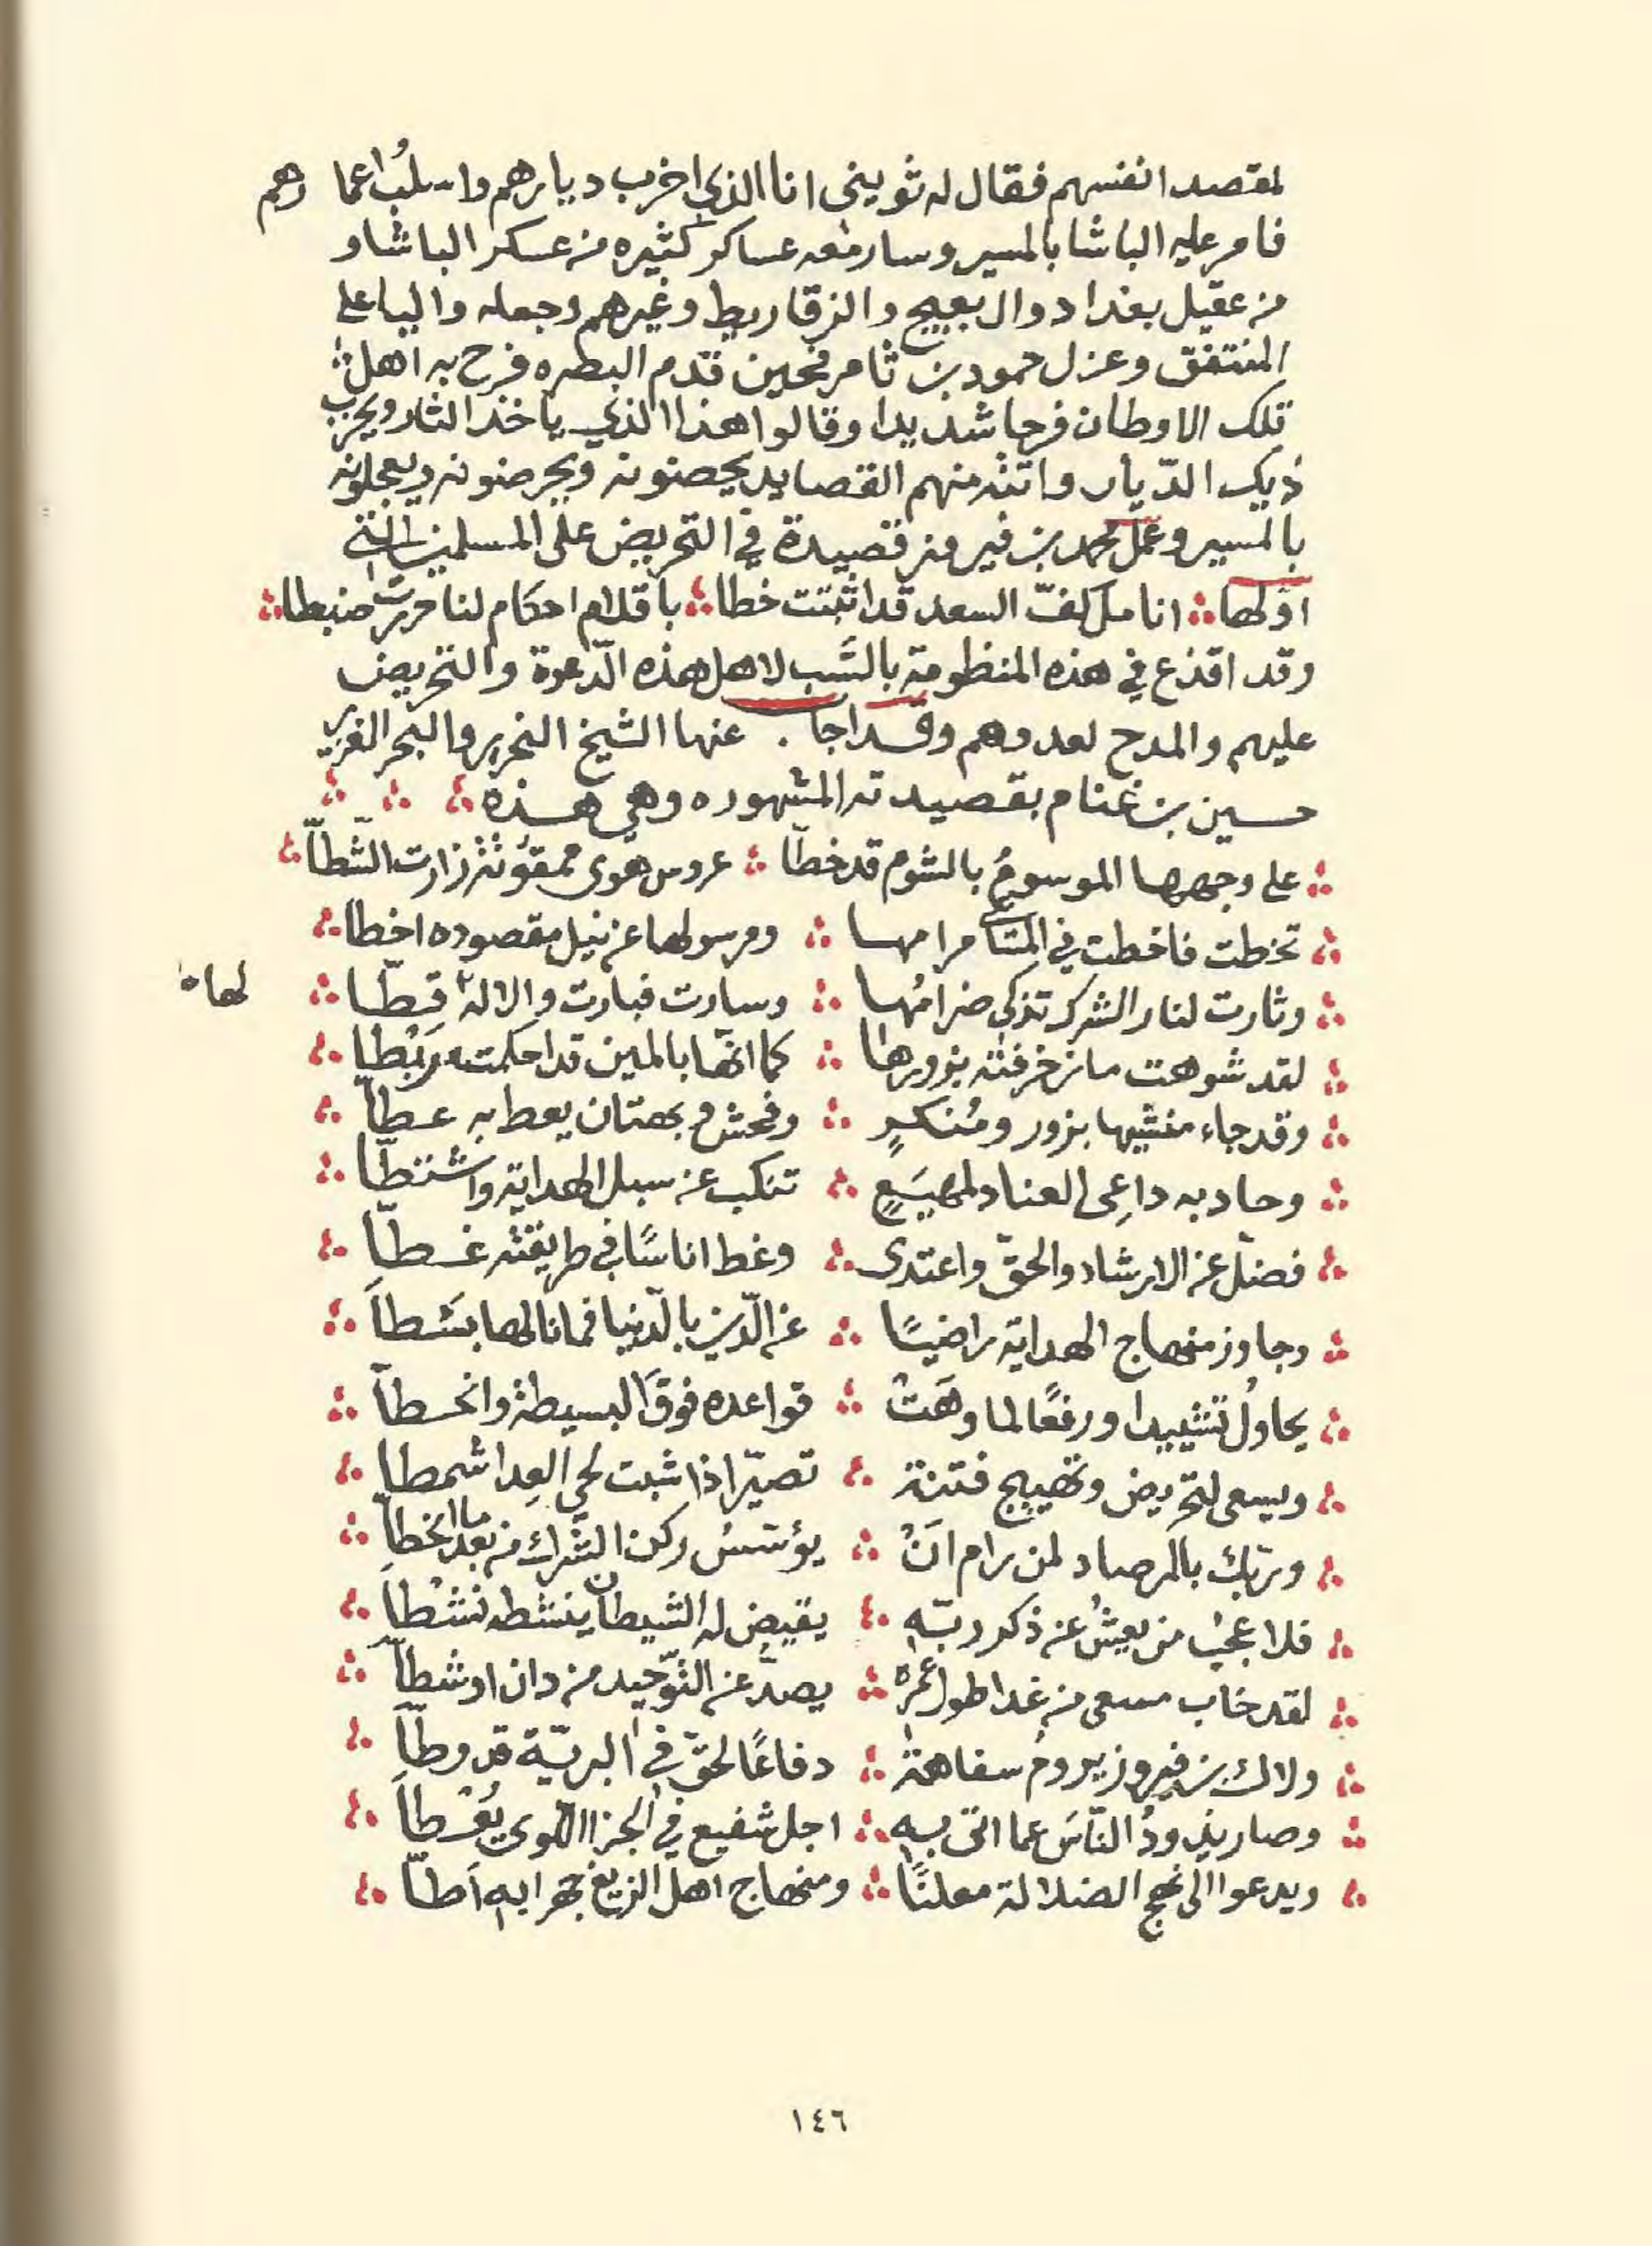 لمقصد انفسهم فقال له ثويني انا الذي اخرب ديارهم واسلب اعمارهم
فامر عليه الباشا بالمسير وسار معه عساكر كثيره من عسكر الباشا و
من عقيل بغداد وال بعيج والزقاريط وغيرهم وجعله واليا على
المنتفق وعزل حمود بن ثامر فحين قدم البصره فرح به اهل
تلك الاوطان فرحا شديدا وقالوا هذا الذي ياخذ الثار ويخرب
ذيك الديار واتته منهم القصايد يحضونه ويحرضونه ويعجلونه
بالمسير وعمل محمد بن فيروز قصيدة في التحريض على المسلمين التي
اولها ∴ انامل كفّ السعد قد اثبتت خطا ∴ باقلام احكام لنا حررت ضبطا ∴
وقد اقذع في هذه المنظومة بالسّب لاهل هذه الدّعوة والتحريض
عليهم والمدح لعدوهم وقد اجاب عنها الشيخ النحرير والبحر الغزير
حسين بن غنام بقصيدته المشهوره وهي هذه ∴ ∴ ∴
∴ على وجهها الموسومُ بالشوم قد خطّا ∴ عروس هوى ممقوتة زارت الشّطّا ∴
∴ تخطت فاخطت في المساعي مرامها ∴ ومرسولها عن نيل مقصوده اخطا ∴
∴ وثارت لنار الشرك تذكي ضرامُها ∴ وسارت فبارت والاله لها قطّا ∴
∴ لقد شوهت ما زخرفته بزورها ∴ كما انّها بالمين قد احكمته رَبْطا ∴
∴ وقد جاء منشيها بزور ومُنكرٍ ∴ وفحش وبهتان يعط به عطّا ∴
∴ وحاد به داعِي العناد لمهيَعٍ ∴ تنكب عن سبل الهداية واشتطّا ∴
∴ فضلّ عن الارشاد والحقّ واعتدى ∴ وغط اناسًا في طريقته غطّا ∴
∴ وجاوز منهاج الهداية راضيًا ∴ عن الدّين بالدّنيا فما نالها بَسْطا ∴
∴ يحاولُ تشييدا ورفعًا لما وهَتْ ∴ قواعده فوقَ البسيطة وانحطّا ∴
∴ ويسعى لتحريض وتهييج فتنة ∴ تصيّر اذا شبت لحى العِدا شمطا ∴
∴ وربك بالمرصاد لمن رام انْ ∴ يؤسسُ ركن الشرك من بعد ما انحطّا ∴
∴ فلا عجبُ من يعشُ عن ذكر ربّه ∴ يقيض له الشيطان ينشطه نَشْطا ∴
∴ لقد خاب مسعى من غدا طول عمره ∴ يصدُّ عن التّوحيد من دان او شطّا ∴
∴ ولاك بن فيروز يرومُ سفاهةً ∴ دفاعًا لحقّ في البريّة قد وطّا ∴
∴ وصار يذودُ النّاسَ عما اتى به ∴ اجل شفيع في الجزا اللوى يُعْطا ∴
∴ ويدعوا الى نهج الضلالة معلنًا ∴ ومنهاج اهل الزيغ جهرا به اَطّا ∴
١٤٦